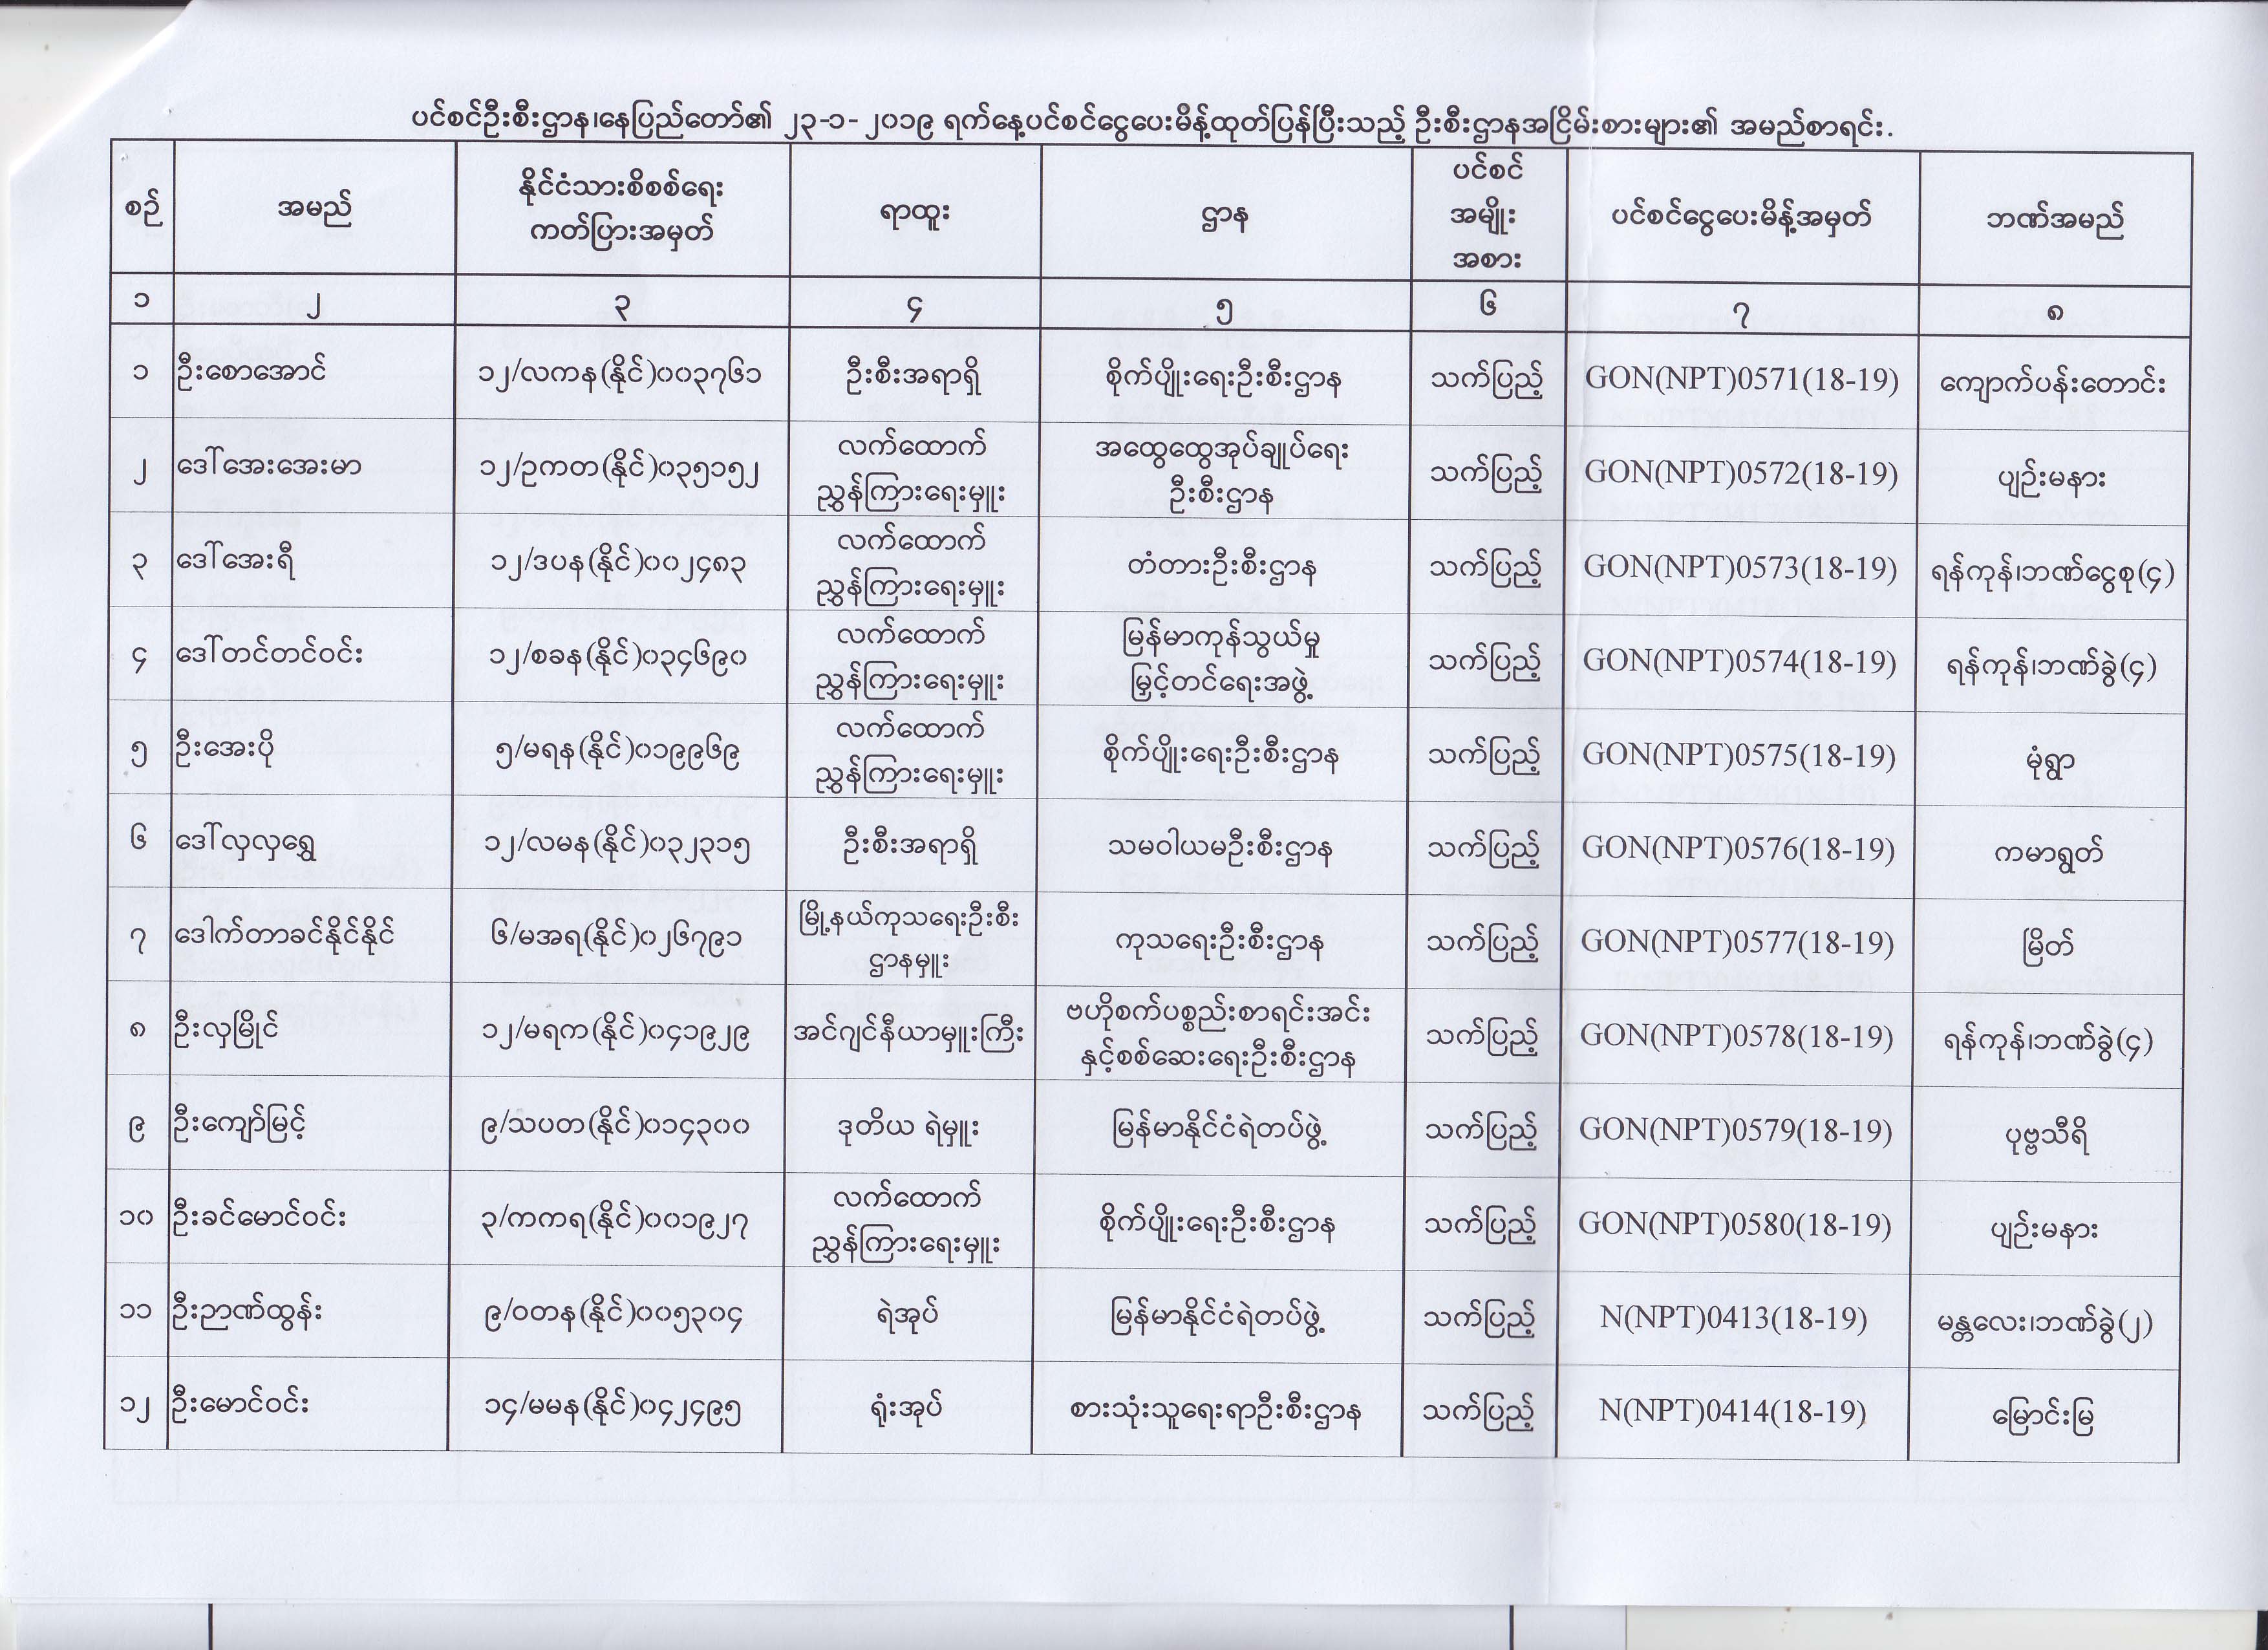 ပင်စင်ဦးစီးဌာန၊နေပြည်တော်၏ ၂၃-၁-၂၀၁၉ ရက်နေ့ပင်စင်ငွေပေးမိန့်ထုတ်ပြန်ပြီးသည့် ဦးစီးဌာနအငြိမ်းစားများ၏ အမည်စာရင်း.
စဉ် အမည် နိုင်ငံသားစိစစ်ရေး ကတ်ပြားအမှတ် ရာထူး ဌာန ပင်စင် အမျိုး အစား ပင်စင်ငွေပေးမိန့်အမှတ် ဘဏ်အမည်
၁ ၂ ၃ ၄ ၅ ၆ ၇ ၈
၁ ဦးစောအောင် ၁၂/လကန(နိုင်)၀၀၃၇၆၁ ဦးစီးအရာရှိ စိုက်ပျိုးရေးဦးစီးဌာန သက်ပြည့် GON(NPT)0571(18-19) ကျောက်ပန်းတောင်း
၂ ဒေါ်အေးအေးမာ ၁၂/ဥကတ(နိုင်)၀၃၅၁၅၂ လက်ထောက် ညွှန်ကြားရေးမှူး အထွေထွေအုပ်ချုပ်ရေး ဦးစီးဌာန သက်ပြည့် GON(NPT)0572(18-19) ပျဉ်းမနား
၃ ဒေါ်အေးရီ ၁၂/ဒပန(နိုင်)၀၀၂၄၈၃ လက်ထောက် ညွှန်ကြားရေးမှူး တံတားဦးစီးဌာန သက်ပြည့် GON(NPT)0573(18-19) ရန်ကုန်၊ဘဏ်ငွေစု(၄)
၄ ဒေါ်တင်တင်ဝင်း ၁၂/စခန(နိုင်)၀၃၄၆၉၀ လက်ထောက် ညွှန်ကြားရေးမှူး မြန်မာကုန်သွယ်မှု မြှင့်တင်ရေးအဖွဲ့ သက်ပြည့် GON(NPT)0574(18-19) ရန်ကုန်၊ဘဏ်ခွဲ(၄)
၅ ဦးအေးပို ၅/မရန(နိုင်)၀၁၉၉၆၉ လက်ထောက် ညွှန်ကြားရေးမှူး စိုက်ပျိုးရေးဦးစီးဌာန သက်ပြည့် GON(NPT)0575(18-19) မုံရွာ
၆ ဒေါ်လှလှရွှေ ၁၂/လမန(နိုင်)၀၃၂၃၁၅ ဦးစီးအရာရှိ သမဝါယမဦးစီးဌာန သက်ပြည့် GON(NPT)0576(18-19) ကမာရွတ်
၇ ဒေါက်တာခင်နိုင်နိုင် ၆/မအရ(နိုင်)၀၂၆၇၉၁ မြို့နယ်ကုသရေးဦးစီး ဌာနမှူး ကုသရေးဦးစီးဌာန သက်ပြည့် GON(NPT)0577(18-19) မြိတ်
၈ ဦးလှမြိုင် ၁၂/မရက(နိုင်)၀၄၁၉၂၉ အင်ဂျင်နီယာမှူးကြီး ဗဟိုစက်ပစ္စည်းစာရင်းအင်း နှင့်စစ်ဆေးရေးဦးစီးဌာန သက်ပြည့် GON(NPT)0578(18-19) ရန်ကုန်၊ဘဏ်ခွဲ(၄)
၉ ဦးကျော်မြင့် ၉/သပတ(နိုင်)၀၁၄၃၀၀ ဒုတိယ ရဲမှူး မြန်မာနိုင်ငံရဲတပ်ဖွဲ့ သက်ပြည့် GON(NPT)0579(18-19) ပုဗ္ဗသီရိ
၁၀ ဦးခင်မောင်ဝင်း ၃/ကကရ(နိုင်)၀၀၁၉၂၇ လက်ထောက် ညွှန်ကြားရေးမှူး စိုက်ပျိုးရေးဦးစီးဌာန သက်ပြည့် GON(NPT)0580(18-19) ပျဉ်းမနား
၁၁ ဦးဉာဏ်ထွန်း ၉/ဝတန(နိုင်)၀၀၅၃၀၄ ရဲအုပ် မြန်မာနိုင်ငံရဲတပ်ဖွဲ့ သက်ပြည့် N(NPT)0413(18-19) မန္တလေး၊ဘဏ်ခွဲ(၂)
၁၂ ဦးမောင်ဝင်း ၁၄/မမန(နိုင်)၀၄၂၄၉၅ ရုံးအုပ် စားသုံးသူရေးရာဦးစီးဌာန သက်ပြည့် N(NPT)0414(18-19) မြောင်းမြ